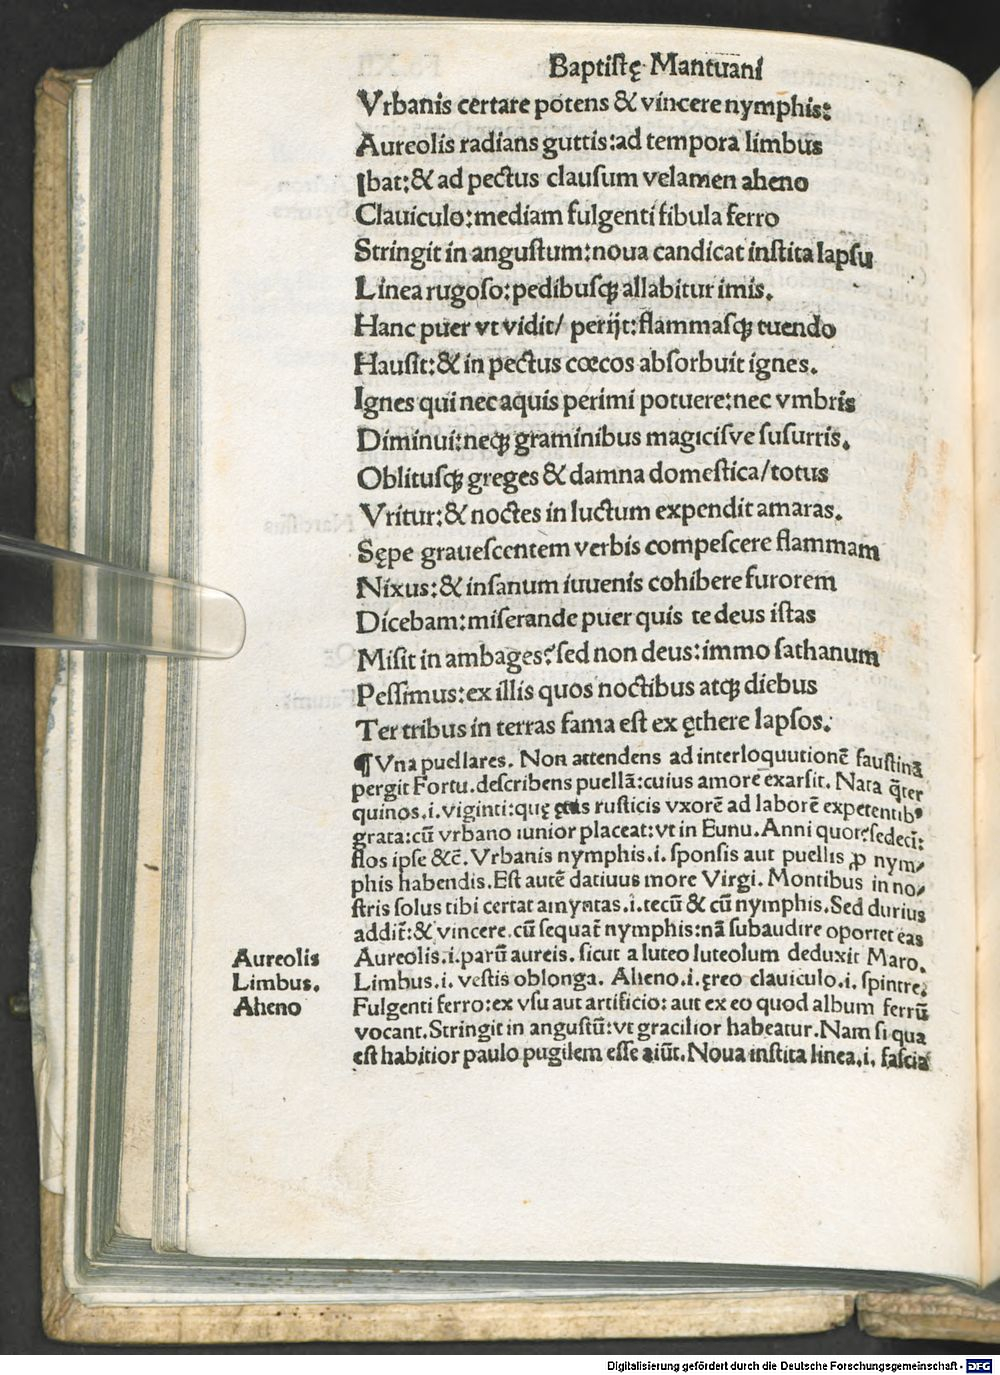 Baptistę Mantuani
Vrbanis certare potens & vincere nymphis:
Aureolis radians guttis:ad tempora limbus
Ibat:& ad pectus clausum velamen aheno
Clauiculo:mediam fulgenti fibula ferro
Stringit in angustum:noua candicat instita lapsu
Linea rugoso:pedibusqꝫ allabitur imis.
Hanc puer vt vidit/ perijt:flammasqꝫ tuendo
Hausit:& in pectus cœcos absorbuit ignes.
Ignes qui nec aquis perimi potuere:nec vmbris
Diminui:neqꝫ graminibus magicisve susurris.
Oblitusqꝫ greges & damna domestica/totus
Vritur:& noctes in luctum expendit amaras.
Sępe grauescentem verbis compescere flammam
Nixus:& insanum iuuenis cohibere furorem
Dicebam:miserande puer quis te deus istas
Misit in ambages?sed non deus:immo sathanum
Pessimus:ex illis quos noctibus atqꝫ diebus
Ter tribus in terras fama est ex ęthere lapsos.
¶ Vna puellares. Non attendens ad interloquutionē faustinā
pergit Fortu.describens puellā:cuius amore exarsit. Nata q̄ter
quinos.i.viginti:quę rusticis vxorē ad laborē expetentibꝰ
grata:cū vrbano iunior placeat:vt in Eunu.Anni quot?sedeci:
flos ipse &c̄. Vrbanis nymphis.i. sponsis aut puellis ꝓ nym/
phis habendis.Est autē datiuus more Virgi. Montibus in no/
stris solus tibi certat amyntas.i.tecū & cū nymphis.Sed durius
addit̄:& vincere.cū sequat̄ nymphis:nā subaudire oportet eas
Aureolis Aureolis.i.parū aureis. sicut a luteo luteolum deduxit Maro.
Limbus. Limbus.i. vestis oblonga. Aheno.i.ęreo clauiculo.i. spintre:
Aheno Fulgenti ferro:ex vsu aut artificio: aut ex eo quod album ferrū
vocant.Stringit in angustū:vt gracilior habeatur.Nam si qua
est habitior paulo pugilem esse aiūt.Noua instita linea.i. fascia
Digitalisierung gefördert durch die Deutsche Forschungsgemeinschaft - DFG